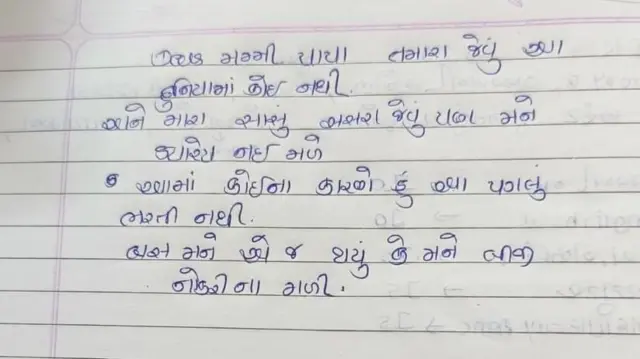 મમ્મી પાપા તમારા જેવું આ
દુનિયામાં કોઈ નથી.
અને મારા સાસુ સસરા જેવું પણ મને
ક્યારેય નઈ મળે
આમાં કોઈના કારણે હું આ પગલું
ભરતી નથી.
બસ મને એ જ થયું કે મને બીજી
નોકરી ના મળી.